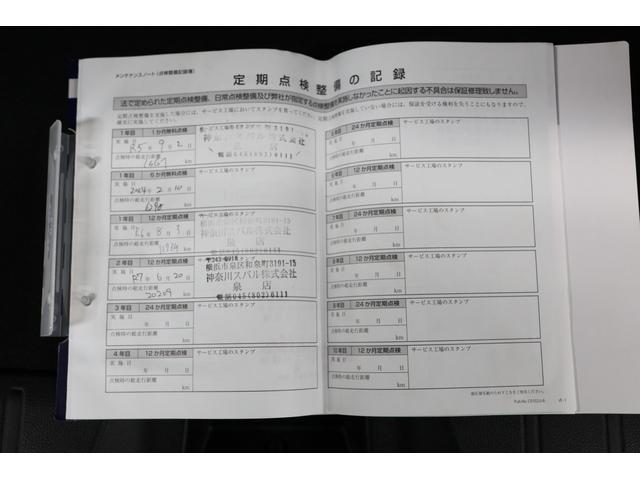 メンテナンスノート(点検整備記録簿)
定期点検整備の記録
法で定められた定期点検整備、日常点検整備及び弊社が指定する点検整備を実施しなかったことに起因する不具合は保証修理致しません。
定期点検整備を実施した場合には、サービス工場においてスタンプを
確実に実施してください。
1年目 1か月無料点検
サービス工場のスタンプ
実施日 R5年9月2日
点検時の総走行距離
1667 km
神奈川スバル株式会社
泉店
電話045(802)6111
1年目 6か月無料点検
実施日 2024年2月10日
点検時の総走行距離
km
サービス工場のスタンプ
1年目 12か月定期点検
実施日 R6年8月3日
点検時の総走行距離
km
横浜市泉区和泉町3191-15
神奈川スバル株式会社
泉店
2年目 12か月定期点検
実施日 R7年6月20日
点検時の総走行距離
20209 km
横浜市泉区和泉町3191-15
神奈川スバル株式会社
泉店
電話045(802)6111
3年目 24か月定期点検
サービス工場のスタンプ
実施日 年 月 日
点検時の総走行距離
km
4年目 12か月定期点検
サービス工場のスタンプ
実施日 年 月 日
点検時の総走行距離
km
24か月定期点検
サービス工場のスタンプ
年 月 日
点検時の総走行距離
km
12か月定期点検
サービス工場のスタンプ
年 月 日
点検時の総走行距離
km
7年目 24か月定期点検
サービス工場のスタンプ
実施日 年 月 日
点検時の総走行距離
km
8年目 12か月定期点検
サービス工場のスタンプ
実施日 年 月 日
点検時の総走行距離
km
9年目 24か月定期点検
サービス工場のスタンプ
実施日 年 月 日
点検時の総走行距離
km
10年目 12か月定期点検
サービス工場のスタンプ
実施日 年 月 日
点検時の総走行距離
km